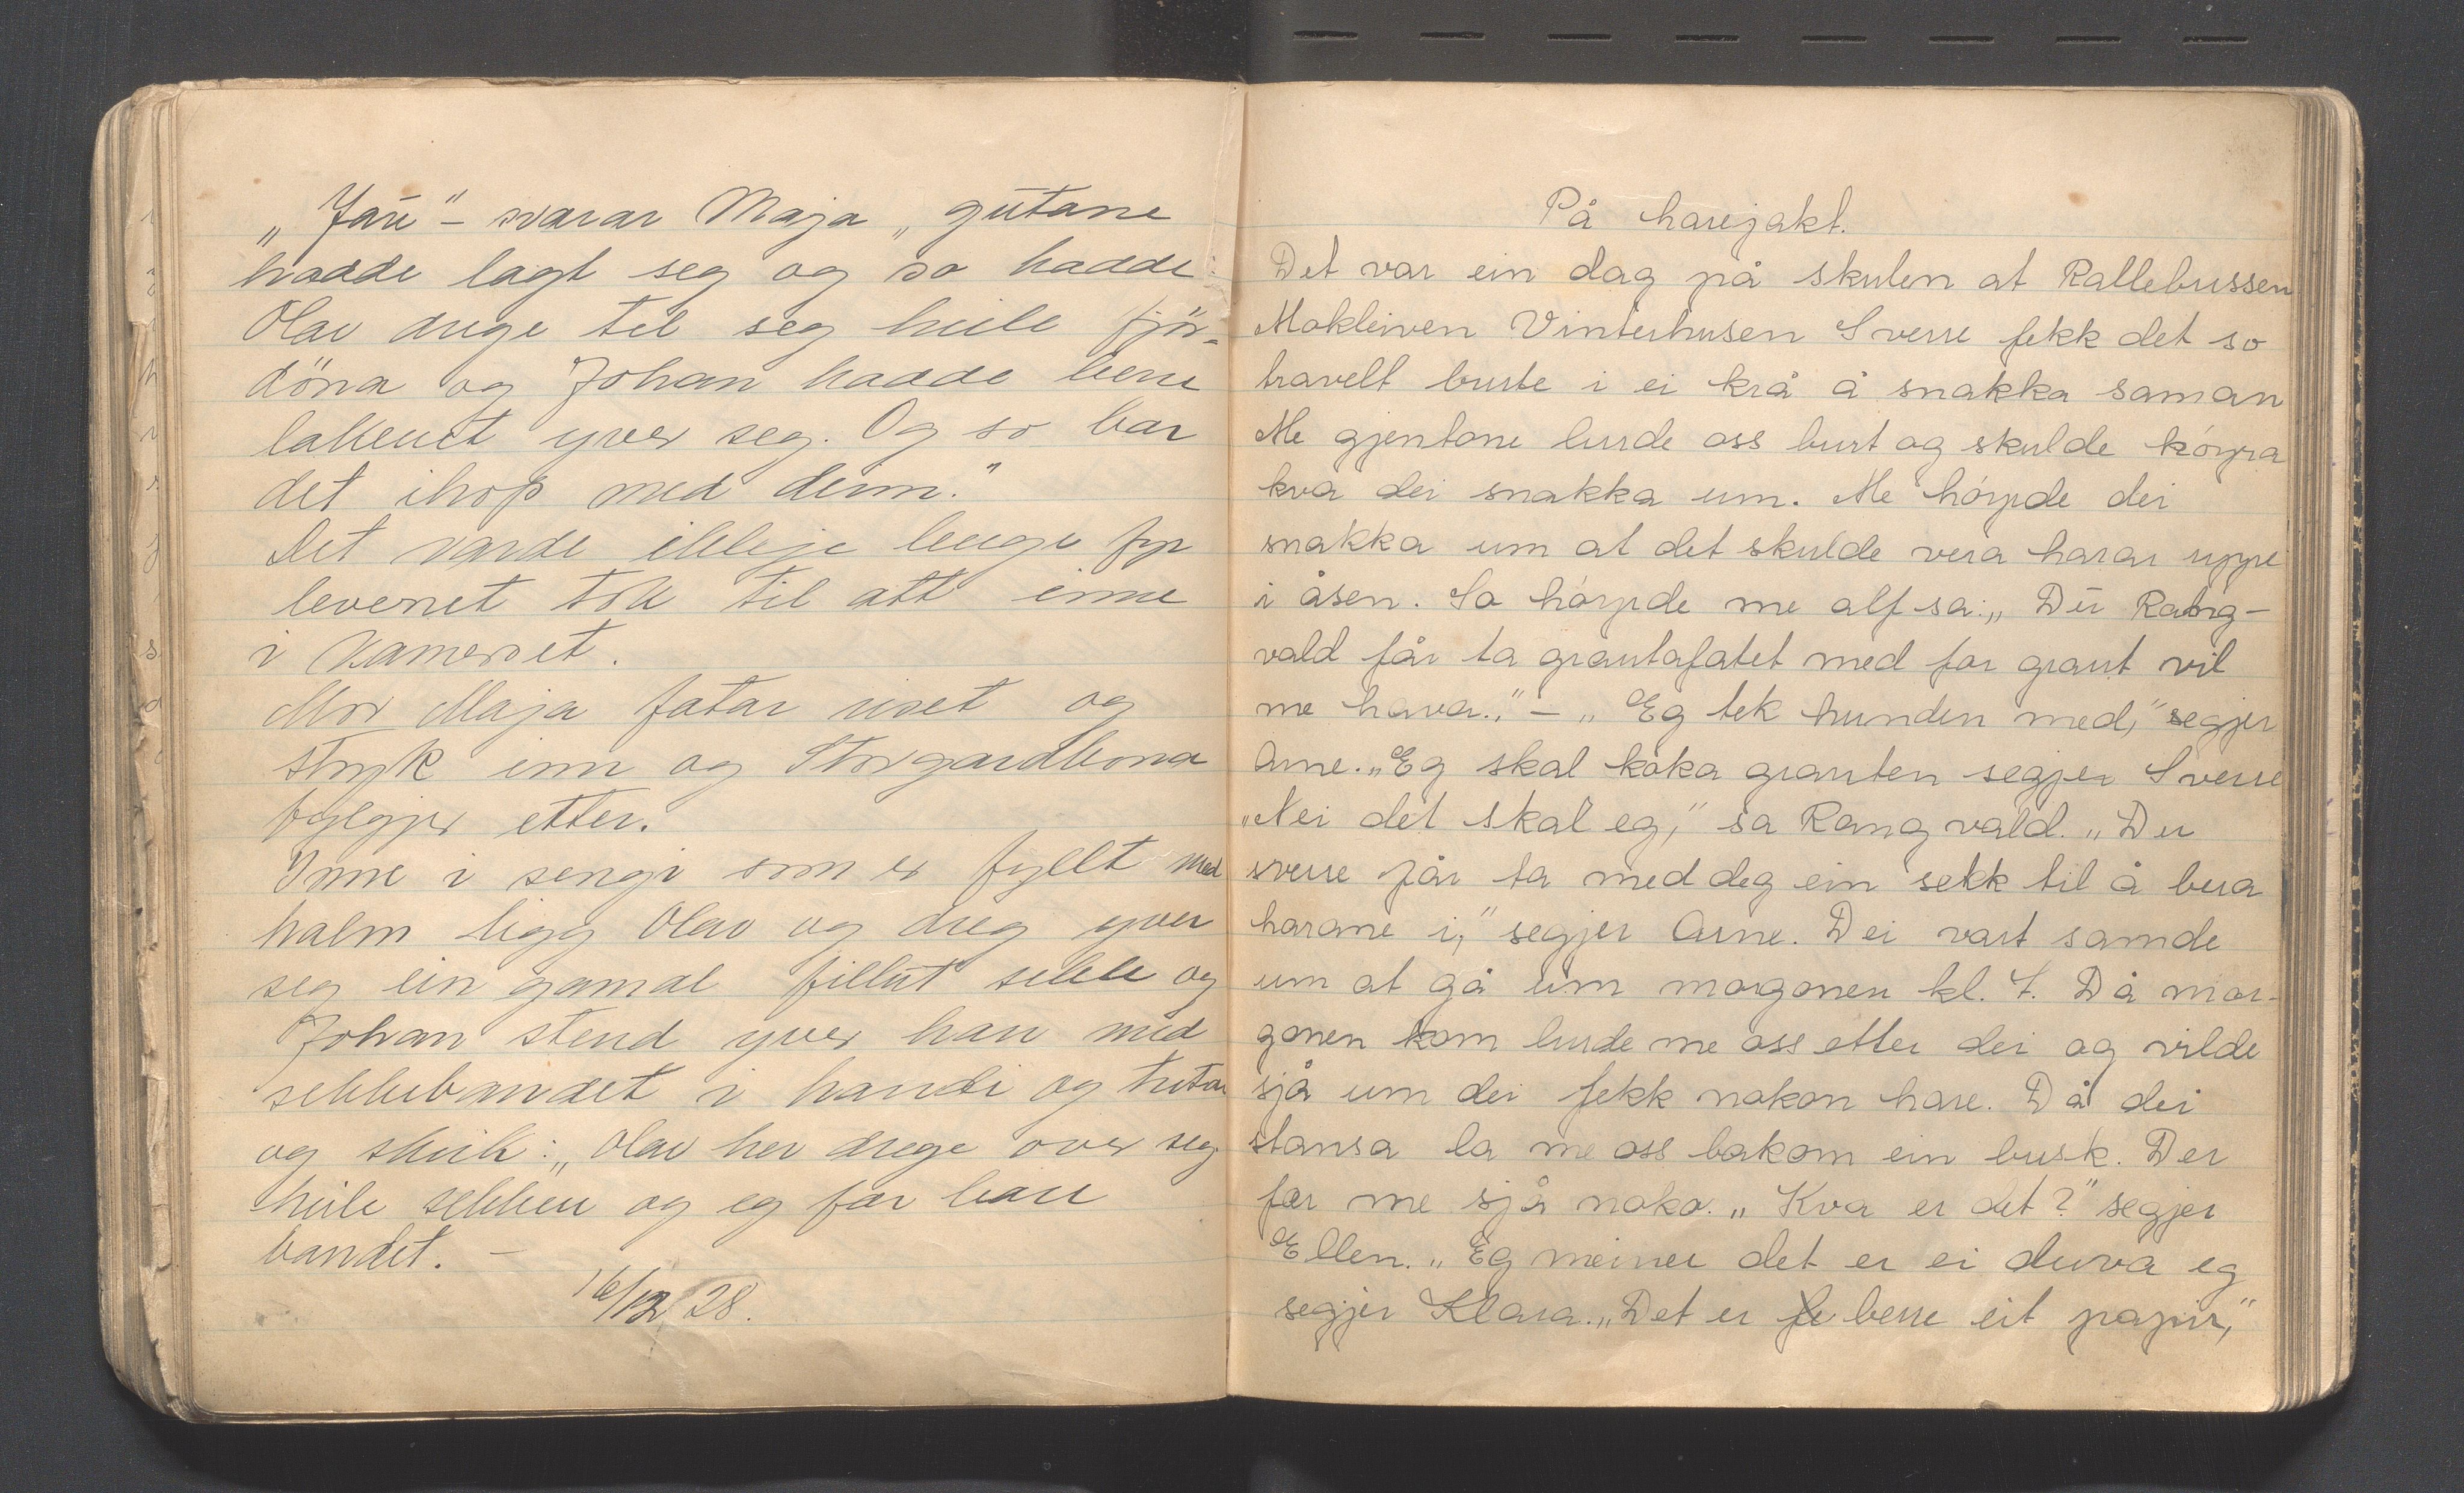 „Jau" – svarar Maja „gutane
hadde lagt seg og so hadde
Olav drege til seg heile fjör-
döna og Johan hadde berre
lakenet yver seg. Og so bar
det ihop med deim."
Det varde ikkje lenge fyr
levenet tok til att inne
i kamerset.
Mor Maja fatar riset og
stryk inn og Storgardkona
fylgjer etter.
Inne i sengi som er fyllt med
halm ligg Olav og dreg yver
seg ein gamal fillut sekk og
Johan stend yver han med
sekkebandet i handi og tutar
og skrik: „Olav her drege over seg
heile sekken og eg får bare
bandet. –
16/12 28.
På harejakt.
Det var ein dag på skulen at Rallebussen
Mokleiven Vinterhusen Sverre fekk det so
travelt burte i ei krå å snakka saman
Me gjentone lurde oss burt og skulde höyra
kva dei snakka um. Me höyrde dei
snakka um at det skulde vera harar uppe
i åsen. So höyrde me alf sa: „Du Rang-
vald får ta grautafatet med for graut vil
me hava.„" – „Eg tek hunden med," segjer
Arne. „Eg skal koka grauten segjer Sverre
„Nei det skal eg," sa Rangvald. „Du
sverre får ta med deg ein sekk til å bera
harane i," segjer Arne. Dei vart samde
um at gå um morgonen kl. 7. Då mor-
gonen kom lurde me oss etter dei og vilde
sjå um dei fekk nokon hare. Då dei
stansa la me oss bakom ein busk. Der
får me sjå noko. „Kva er det?" segjer
Ellen. „Eg meiner det er ei duva eg
segjer Klara. „Det er berre eit papir,"